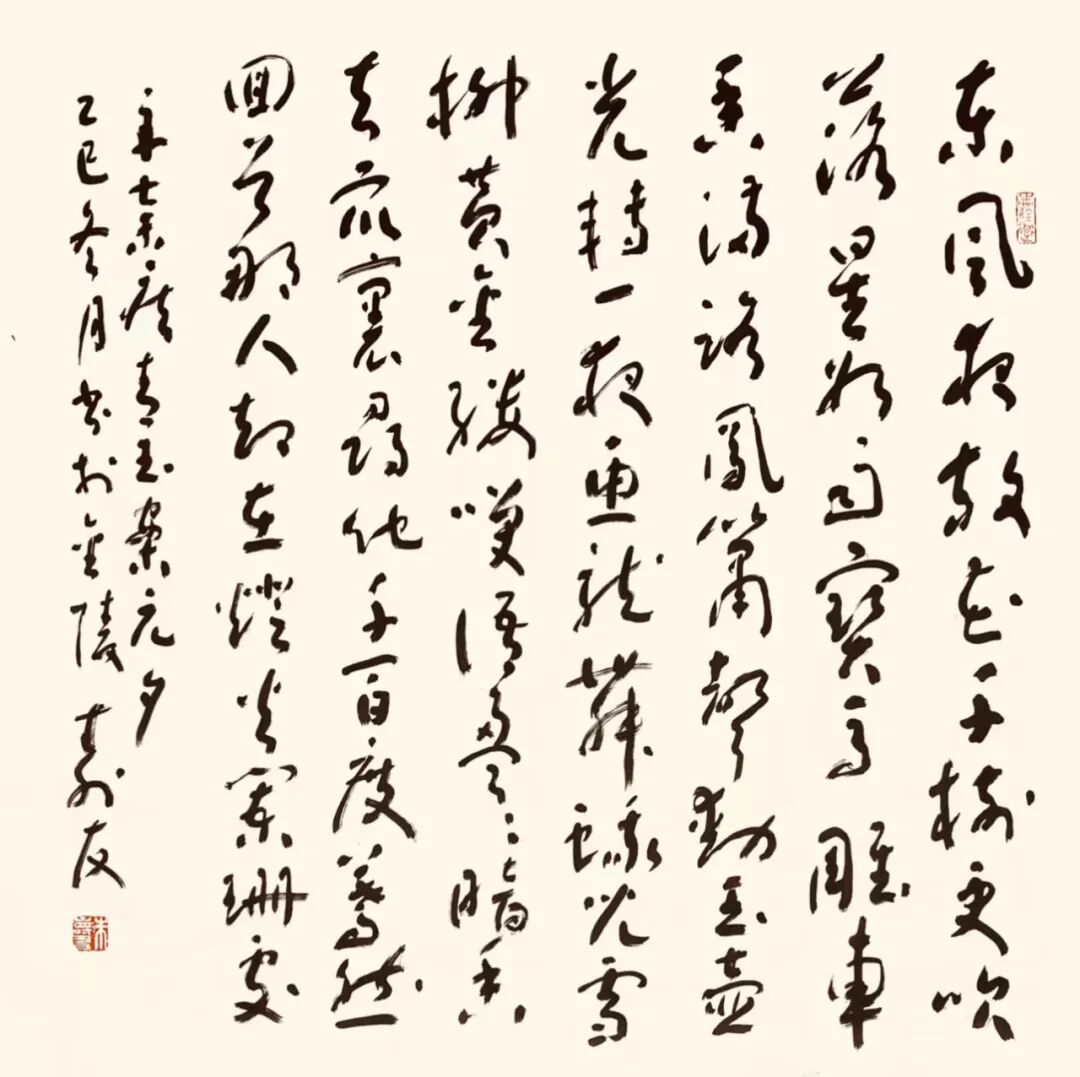 東風夜放花千樹更吹
落星如雨寶馬雕車
香滿路鳳簫聲動玉壺
光轉一夜魚龍舞蛾兒雪
柳黃金縷笑語盈盈暗香
去眾裏尋他千百度驀然
回首那人却在燈火闌珊處
辛棄疾青玉案元夕
乙巳冬月書於金陵壽友